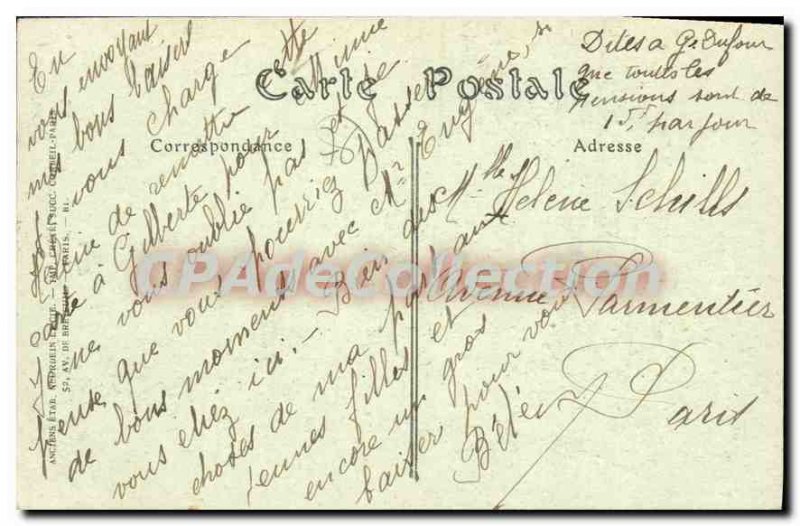 Carte Postale
Correspondance
Adresse
Dites a G. Dufour
que toutes les
pensions sont de
15F. par jour
Mlle Hélène Schills
Avenue Parmentier
Paris
En
vous envoyant
mes bons baisers
vous charge
de remettre cette
carte à Gilberte pour
vous oublie pas et
pense que vous pourriez passer
de bons moments avec Mr Eugène,
vous chez ici. - Bien des
choses de ma par aux
jeunes filles et
encore un gros
baiser pour vous
Bébé
ANCIENS ETAB. NEURDEIN ET CIE. - IMP. CRÉTÉ, SUCC. CORBEIL-PARIS
52, AV. DE BRETEUIL - PARIS. - B1.
CPAdeCollection